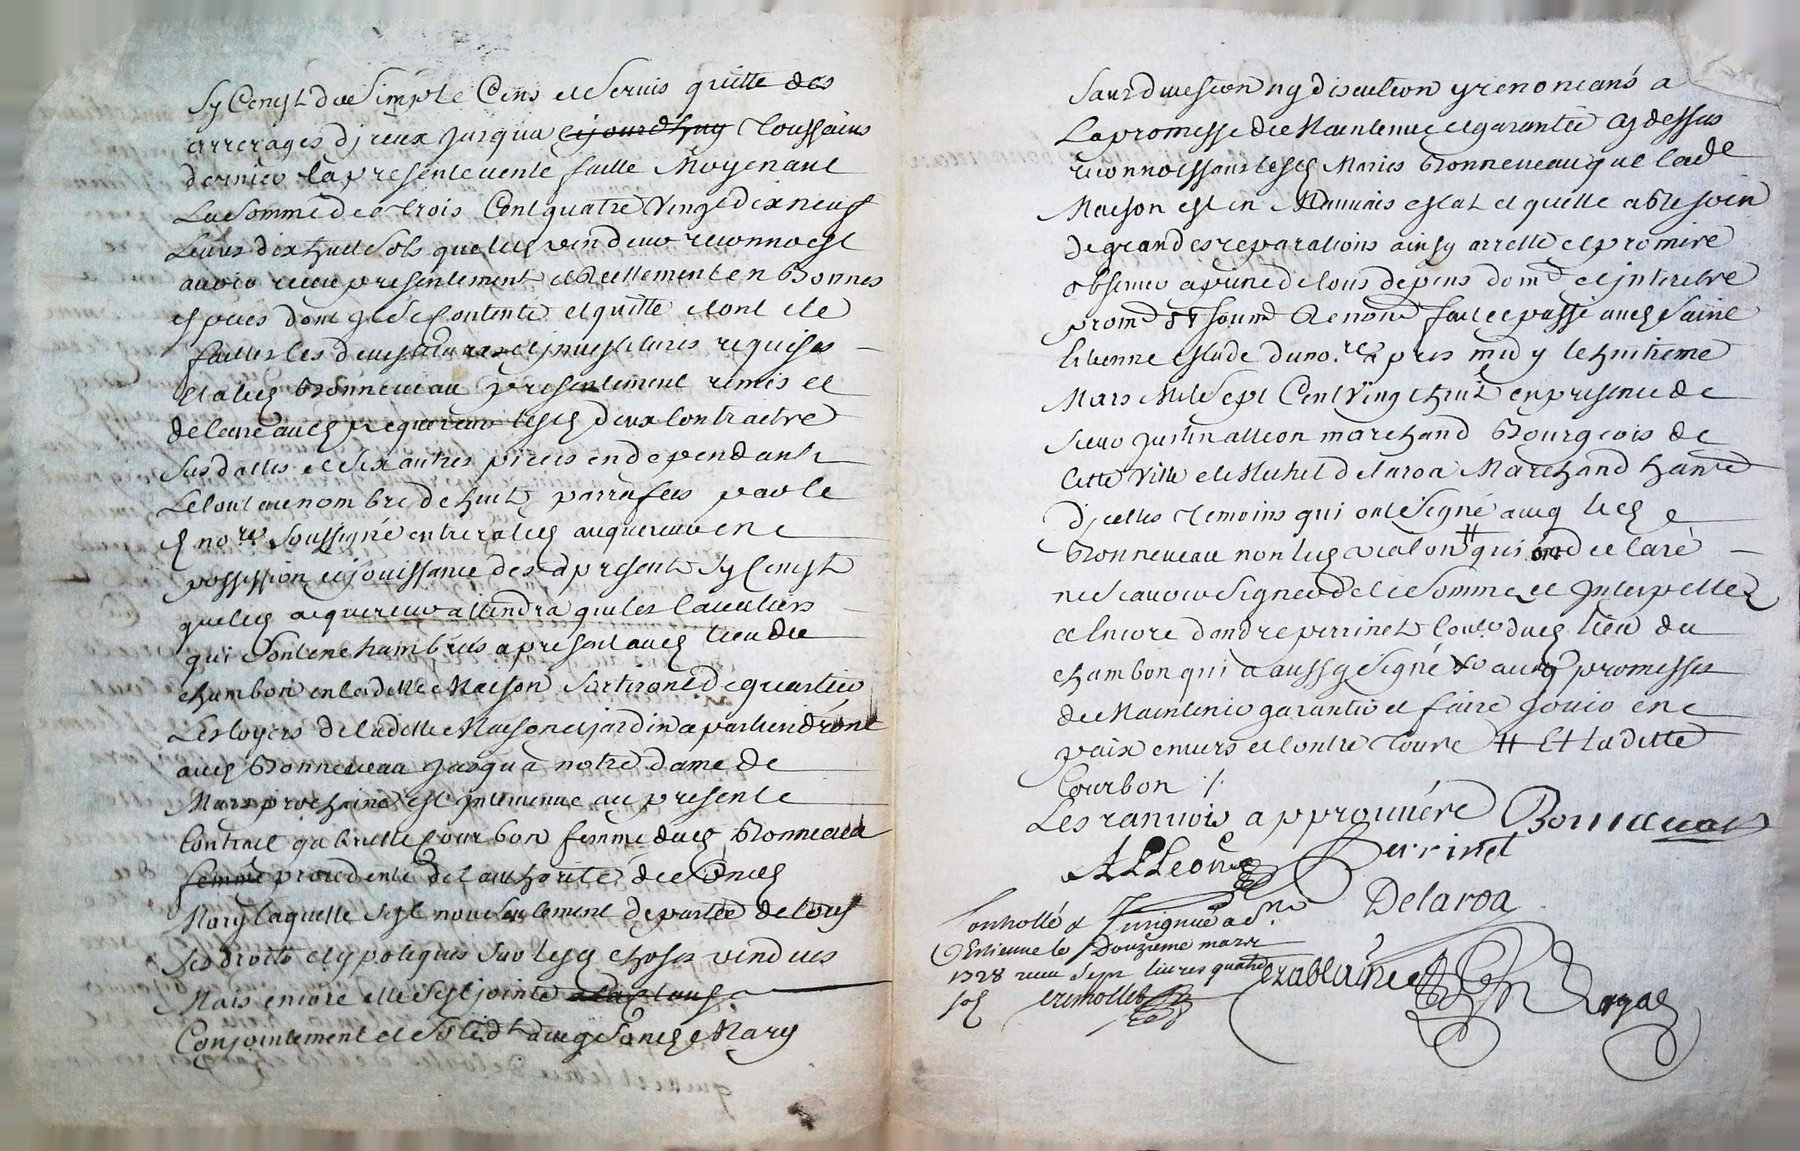 Sy Cenyt due Simple Cens et Servis quitte des
arrerages djceux jusqua cejourdhuy Toussains
dernier la presente vente faitte Moyenant
La Somme de Trois Cent quatre Vingt dix neuf
Livres dix huit Sols que led vendeur reconnoest
avoir receu presentement et Reellement en Bonnes
especes dont il Se Contente et quitte dont ete
faittes les devestitures et jnvestitures requises
Et a led Bonneveau presentement remis et
delivré aud acquereur lesd deux Contraitre
Susdattes et Six autres pieces en dependants
Le tout au nombre de huit parrafees par le
d nore Soussigné entrera led acquereur en
possession et jouissance des a present Sy Cenyt
que led acquereur attendra que les
qui Sont en chambrées a present aud lieu de
chambon en ladette Maison Sortiront de quartier
Les loyers de ladette Maison et jardin apartiendront
aud Bonneveau jusqua notre dame de
Mars prochaine est jntervenue au present
Contract Courbon femme dud Bonneveau
femme procedente de l'authorité de Sond
Mary laquelle Sest non Seulement departée de tous
Ses droits et ypoteques Sur lesd choses vendues
Mais encore elle Sest jointe
Conjointement et Solidt avec Sond Mary
Sans division ny discution y renonceans a
La promesse de Maintenue et garantie Cy dessus
reconnoissant lesd Maries Bonneveau que lade
Maison est en Mauvais estat et quelle a Besoin
de grandes reparations ainsy arretté et promire
observer a peine de tous depens domd et jnterets
promd Soumd Renond fait et passé aud Saint
Etienne estude du nore apres midy le huitieme
Mars Mil Sept Cent Vingt huit en presence de
Sieur justin alleon marchand Bourgeois de
Cette Ville et Michel delaroa Marchand hant
djcelle Temoins qui ont Signé avec led
Bonneveau non led vialon # qui ont declaré
ne Scavoir Signer de ce Sommés et Interpellez
et encore dandre perrinet dud lieu du
chambon qui a aussy Signé avec promesses
de Maintenir garantir et faire jouir en
paix envers et contre Toure # Et laditte
Courbon /.
Les ranvois approuvére Bonneveau
ALLeon Perrinet
Delaroa
Conttollé & Insignué a St
Estienne le Douzieme mars
1728 receu Sept livres quatre
sol